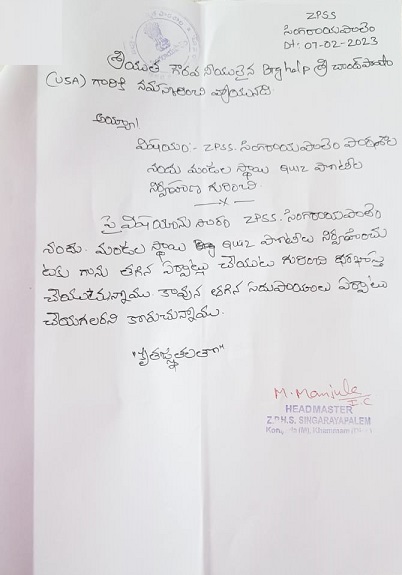 ZPSS
సింగరాయపాలెం
Dt: 07-02-2023
శ్రీయుత గౌరవనీయులైన Brg help శ్రీ చాంద్‌పాషా
(USA) గారికి నమస్కరించి వ్రాయునది.
అయ్యా!
విషయం:- ZPSS. సింగరాయపాలెం పాఠశాల
నందు మండల స్థాయి QUIZ పోటీల
నిర్వహణ గురించి.
—x—
పై విషయానుసారం ZPSS. సింగరాయపాలెం
నందు. మండల స్థాయి QUIZ పోటీలు నిర్వహించు
టకు గాను తగిన ఏర్పాట్లు చేయుట గురించి దరఖాస్తు
చేయుచున్నాము. కావున తగిన సదుపాయాలు ఏర్పాటు
చేయగలరని కోరుచున్నాము.
"కృతజ్ఞతలతో"
M. Manjula
I/C
HEADMASTER
Z.P.H.S. SINGARAYAPALEM
(M), Khammam